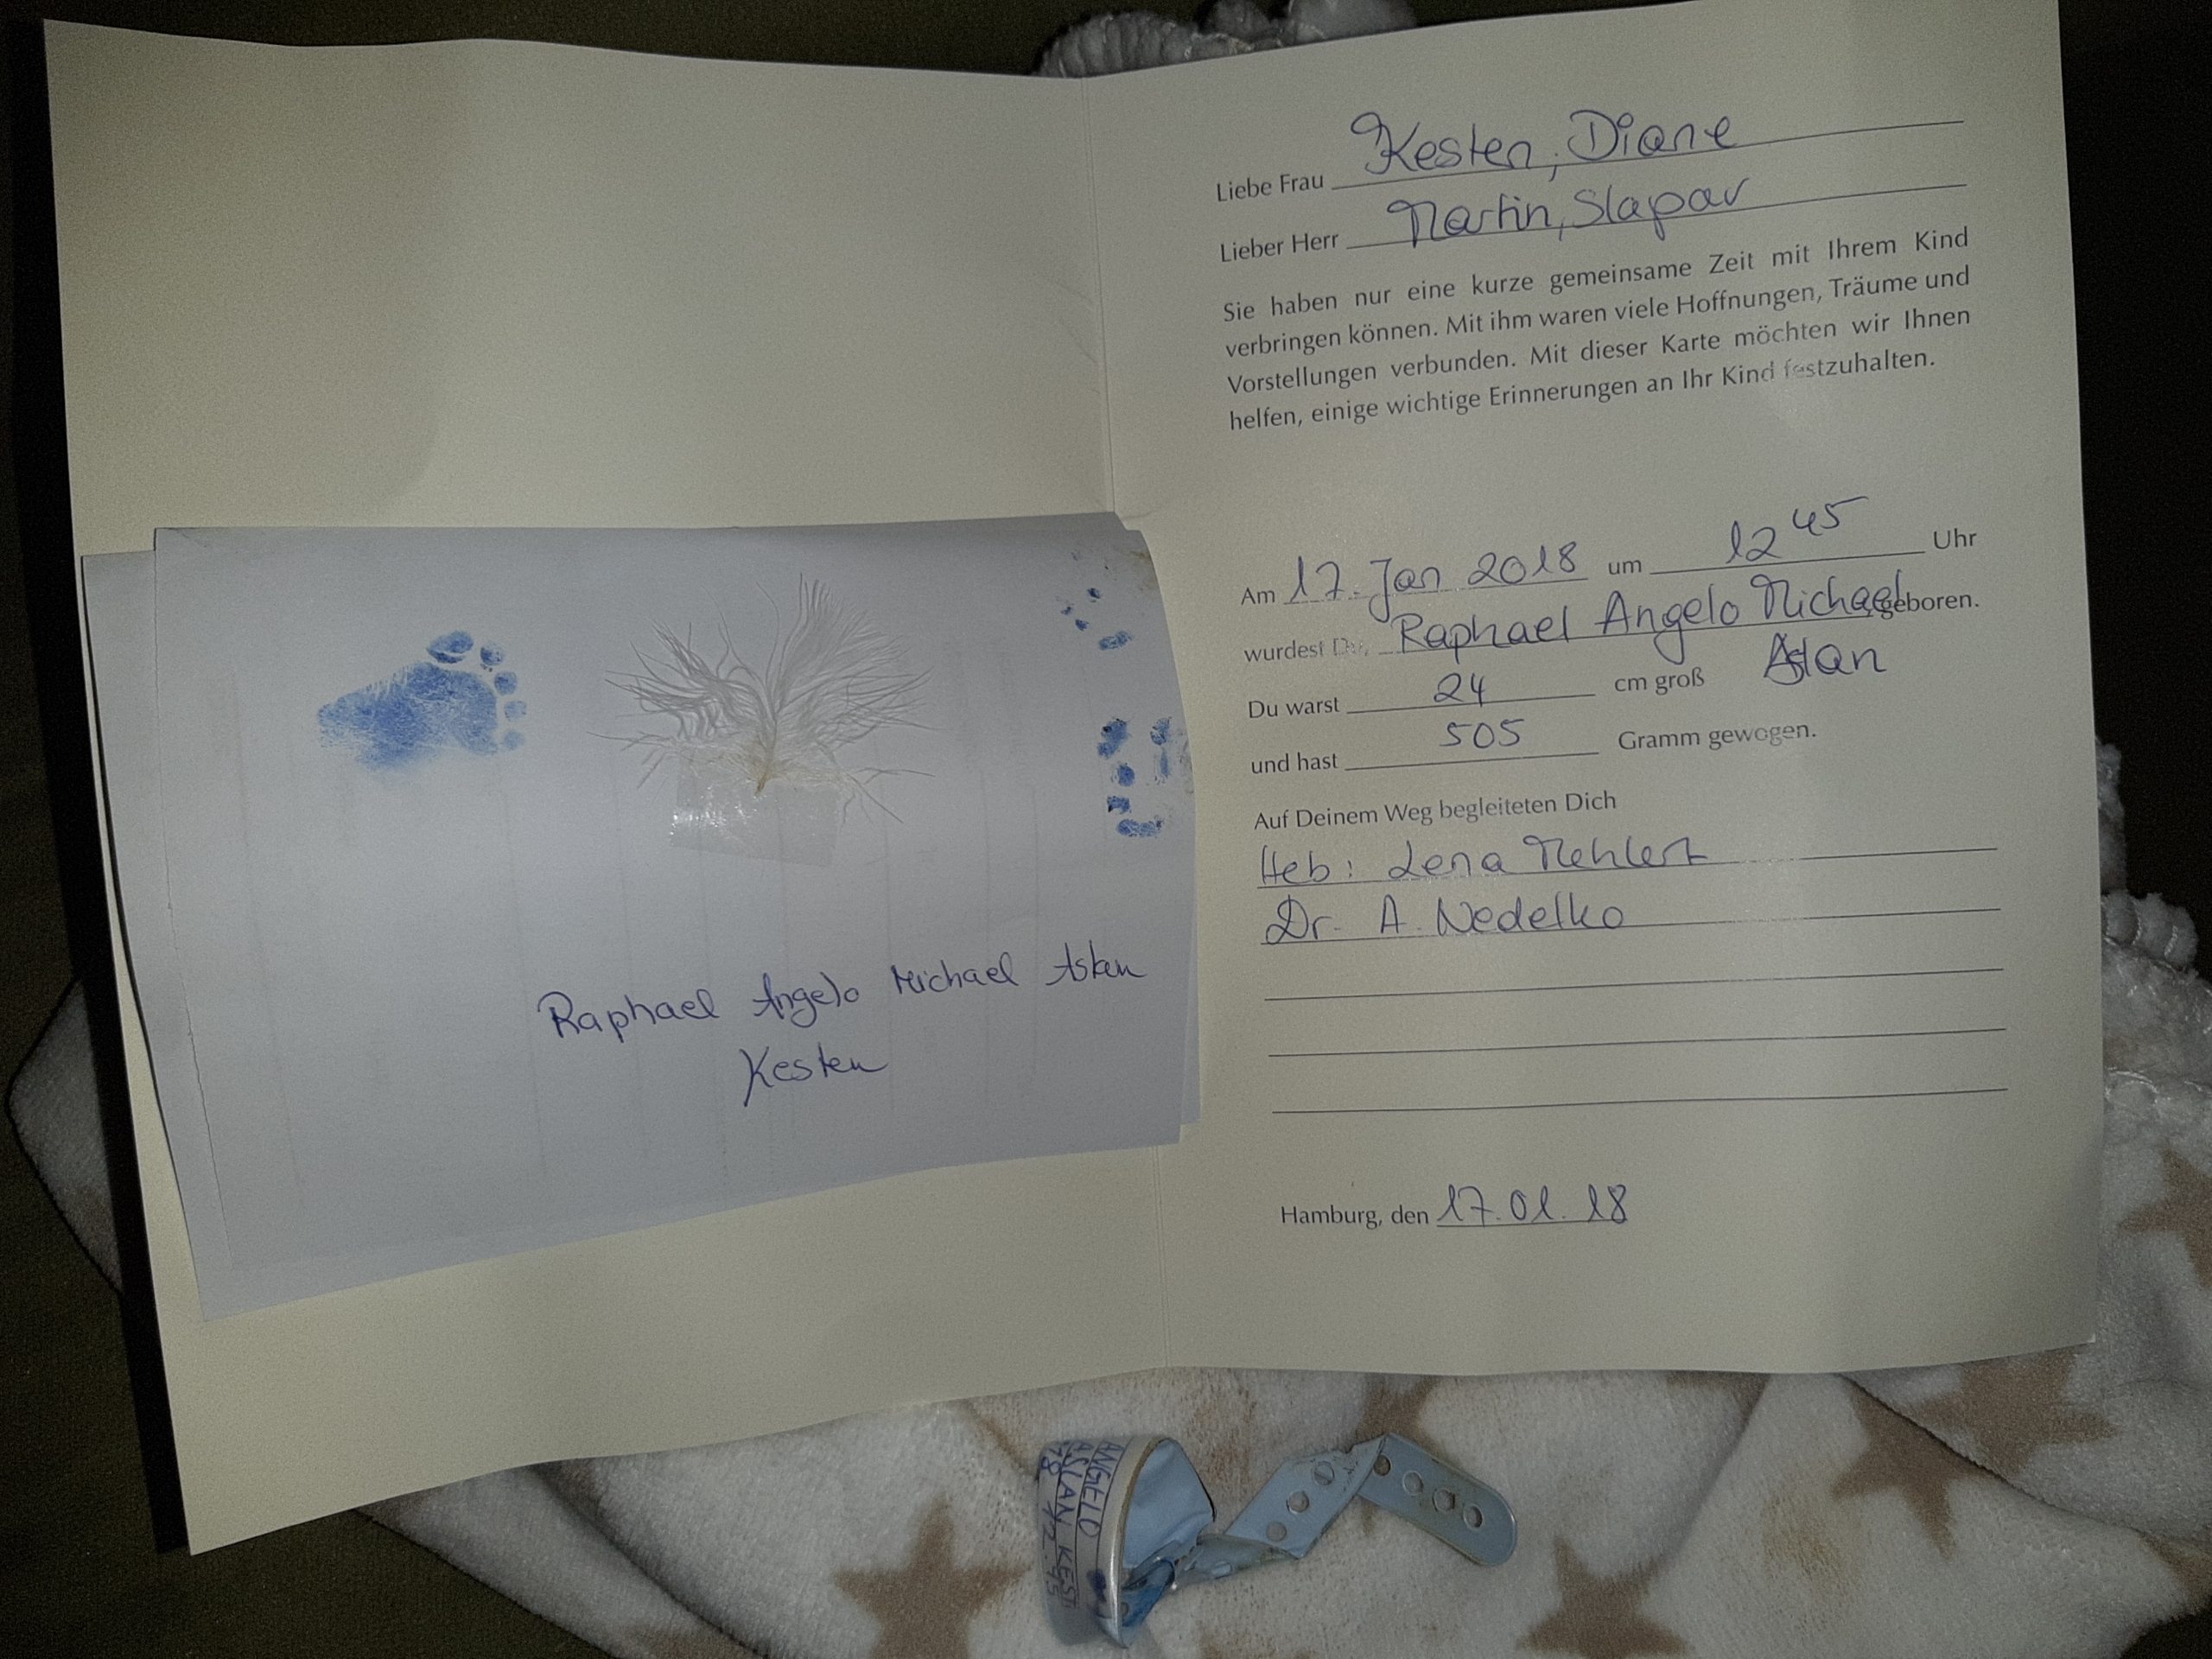 Raphael Angelo Michael Aslan
Kesten
Liebe Frau Kesten, Diane
Lieber Herr Martin, Slapar
Sie haben nur eine kurze gemeinsame Zeit mit Ihrem Kind
verbringen können. Mit ihm waren viele Hoffnungen, Träume und
Vorstellungen verbunden. Mit dieser Karte möchten wir Ihnen
helfen, einige wichtige Erinnerungen an Ihr Kind festzuhalten.
Am 17. Jan 2018 um 12 45 Uhr
wurdest Du, Raphael Angelo Michael geboren.
Aslan
Du warst 24 cm groß
und hast 505 Gramm gewogen.
Auf Deinem Weg begleiteten Dich
Heb: Lena Mehlert
Dr. A. Nedelko
Hamburg, den 17.01.18
ANGELO
ASLAN KEST
18 12.45